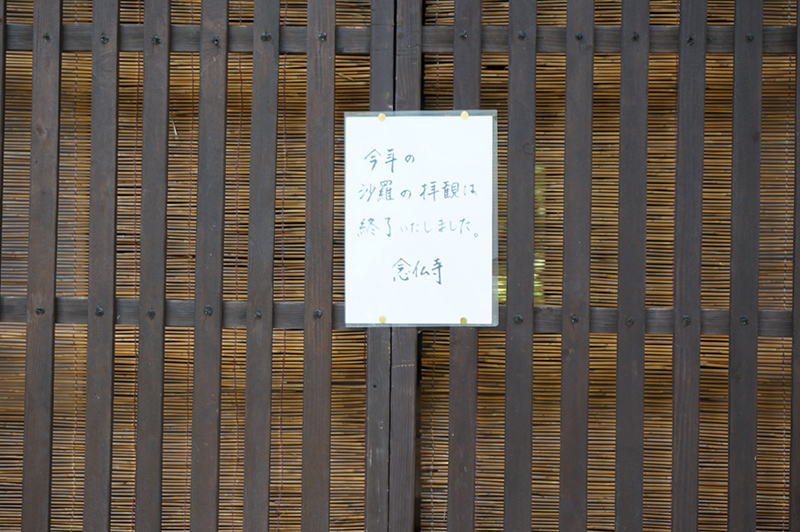 今年の
沙羅の拝観は
終了いたしました。
念仏寺